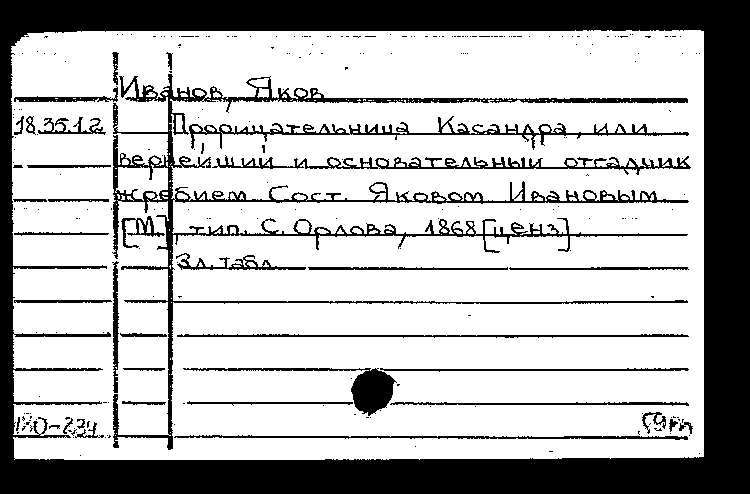 Иванов, Яков
18.35.1.2 Прорицательница Касандра, или
вернейший и основательный отгадчик
жребием. Сост. Яковом Ивановым.
[М.], тип. С. Орлова, 1868 [ценз].
3 л. табл.
180-234